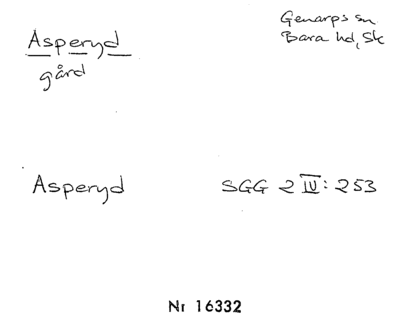 Asperyd
gård
Genarps sn
Bara hd, Sk
Asperyd
SGG 2 IV: 253
Nr 16332